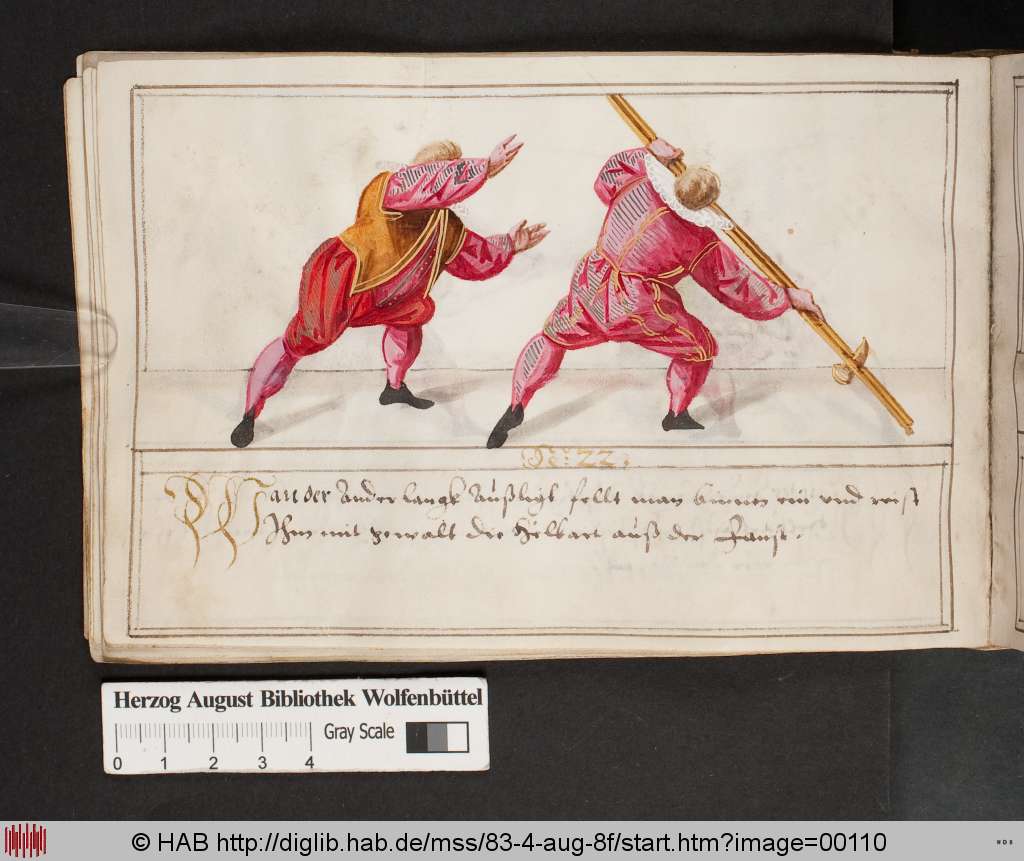 No: 22.
Wan der Ander langk Außligt fellt man binnen ein vnd reist
Ihm mit gewalt die Helbart auß der Faust.
Herzog August Bibliothek Wolfenbüttel
Gray Scale
0 1 2 3 4
© HAB http://diglib.hab.de/mss/83-4-aug-8f/start.htm?image=00110